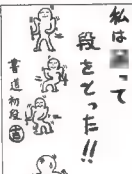 私は って
段をとった!!
書道初段